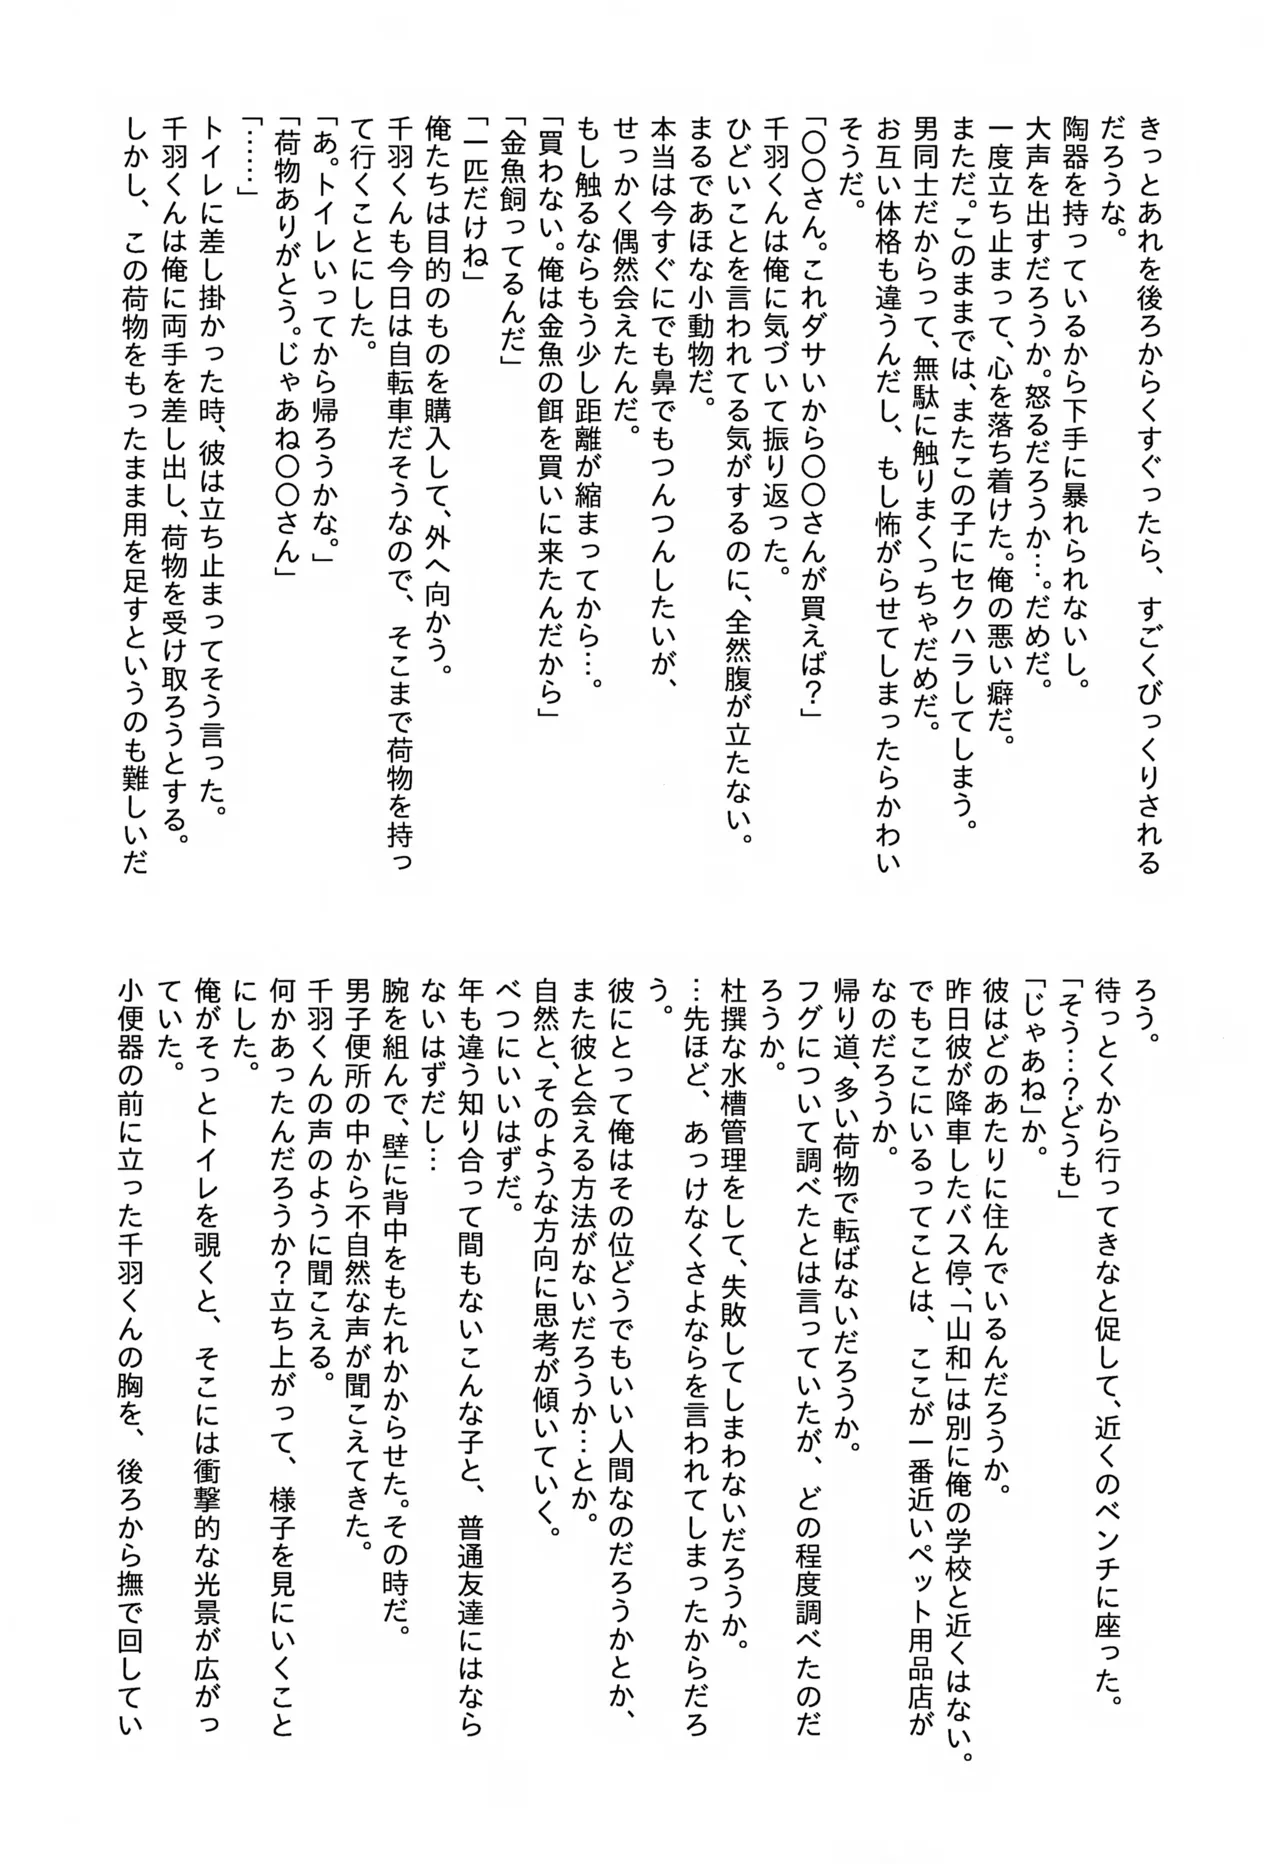 きっとあれを後ろからくすぐったら、すごくびっくりされる
だろうな。
陶器を持っているから下手に暴れられないし。
大声を出すだろうか。怒るだろうか…。だめだ。
一度立ち止まって、心を落ち着けた。俺の悪い癖だ。
まただ。このままでは、またこの子にセクハラしてしまう。
男同士だからって、無駄に触りまくっちゃだめだ。
お互い体格も違うんだし、もし怖がらせてしまったらかわい
そうだ。
「〇〇さん。これダサいから〇〇さんが買えば？」
千羽くんは俺に気づいて振り返った。
ひどいことを言われてる気がするのに、全然腹が立たない。
まるであほな小動物だ。
本当は今すぐにでも鼻でもつんつんしたいが、
せっかく偶然会えたんだ。
もし触るならもう少し距離が縮まってから…。
「買わない。俺は金魚の餌を買いに来たんだから」
「金魚飼ってるんだ」
「一匹だけね」
俺たちは目的のものを購入して、外へ向かう。
千羽くんも今日は自転車だそうなので、そこまで荷物を持っ
て行くことにした。
「あ。トイレいってから帰ろうかな。」
「荷物ありがとう。じゃあね〇〇さん」
「……」
トイレに差し掛かった時、彼は立ち止まってそう言った。
千羽くんは俺に両手を差し出し、荷物を受け取ろうとする。
しかし、この荷物をもったまま用を足すというのも難しいだ
ろう。
待っとくから行ってきなと促して、近くのベンチに座った。
「そう…？どうも」
「じゃあね」か。
彼はどのあたりに住んでいるんだろうか。
昨日彼が降車したバス停、「山和」は別に俺の学校と近くはない。
でもここにいるってことは、ここが一番近いペット用品店が
なのだろうか。
帰り道、多い荷物で転ばないだろうか。
フグについて調べたとは言っていたが、どの程度調べたのだ
ろうか。
杜撰な水槽管理をして、失敗してしまわないだろうか。
…先ほど、あっけなくさよならを言われてしまったからだろ
う。
彼にとって俺はその位どうでもいい人間なのだろうかとか、
また彼と会える方法がないだろうか…とか。
自然と、そのような方向に思考が傾いていく。
べつにいいはずだ。
年も違う知り合って間もないこんな子と、普通友達にはなら
ないはずだし…
腕を組んで、壁に背中をもたれかからせた。その時だ。
男子便所の中から不自然な声が聞こえてきた。
千羽くんの声のように聞こえる。
何かあったんだろうか？立ち上がって、様子を見にいくこと
にした。
俺がそっとトイレを覗くと、そこには衝撃的な光景が広がっ
ていた。
小便器の前に立った千羽くんの胸を、後ろから撫で回してい